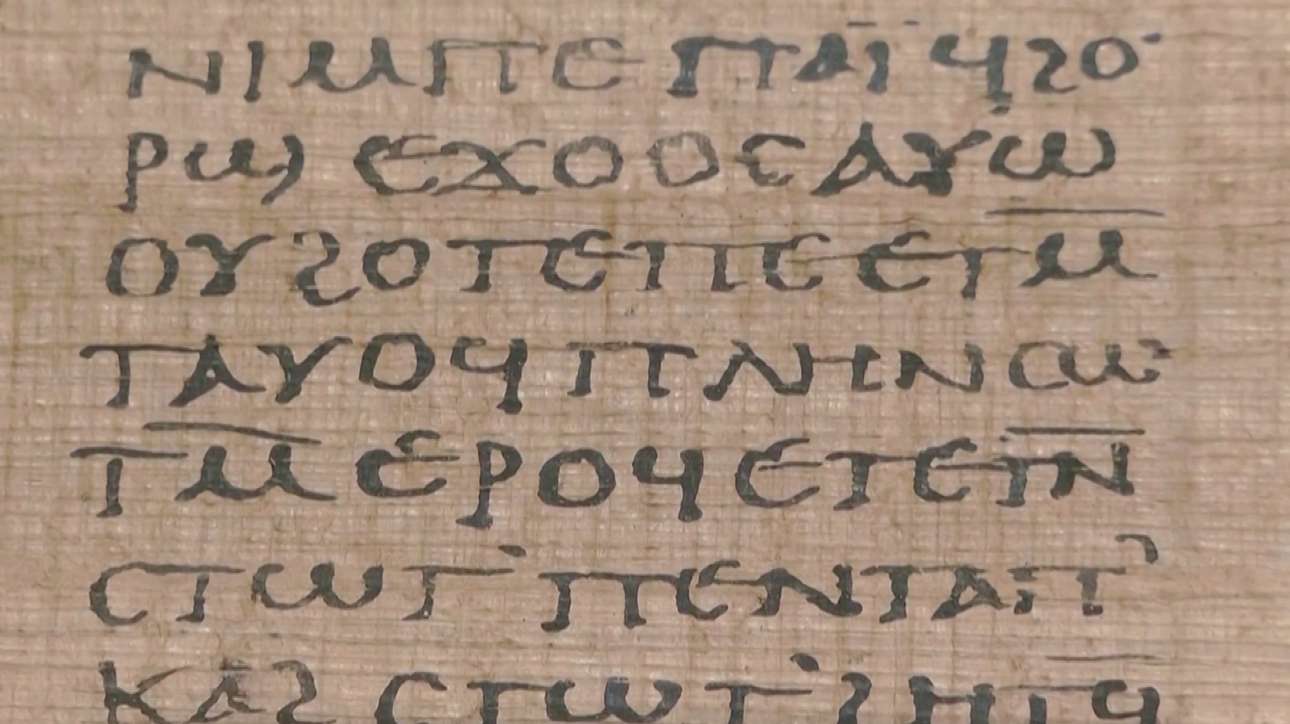 ⲛⲓⲙⲡⲉ ⲡⲁⲓ̈ ϥϩⲟ
ⲣϣ ⲉϫⲟⲟⲥ ⲁⲩⲱ
ⲟⲩϩⲟⲧⲉⲡⲉ ⲉⲧⲙ̄
ⲧⲁⲩⲟϥ ⲡⲗⲏⲛ ⲥⲱ
ⲧⲙ̄ ⲉⲣⲟϥ ⲉⲧⲉⲧⲛ̄
ⲥⲧⲱⲧ' ⲡⲉⲛⲧⲁⲡ'
ⲕⲁϩ ⲥⲧⲱⲧ' ϩⲏⲧϥ̄